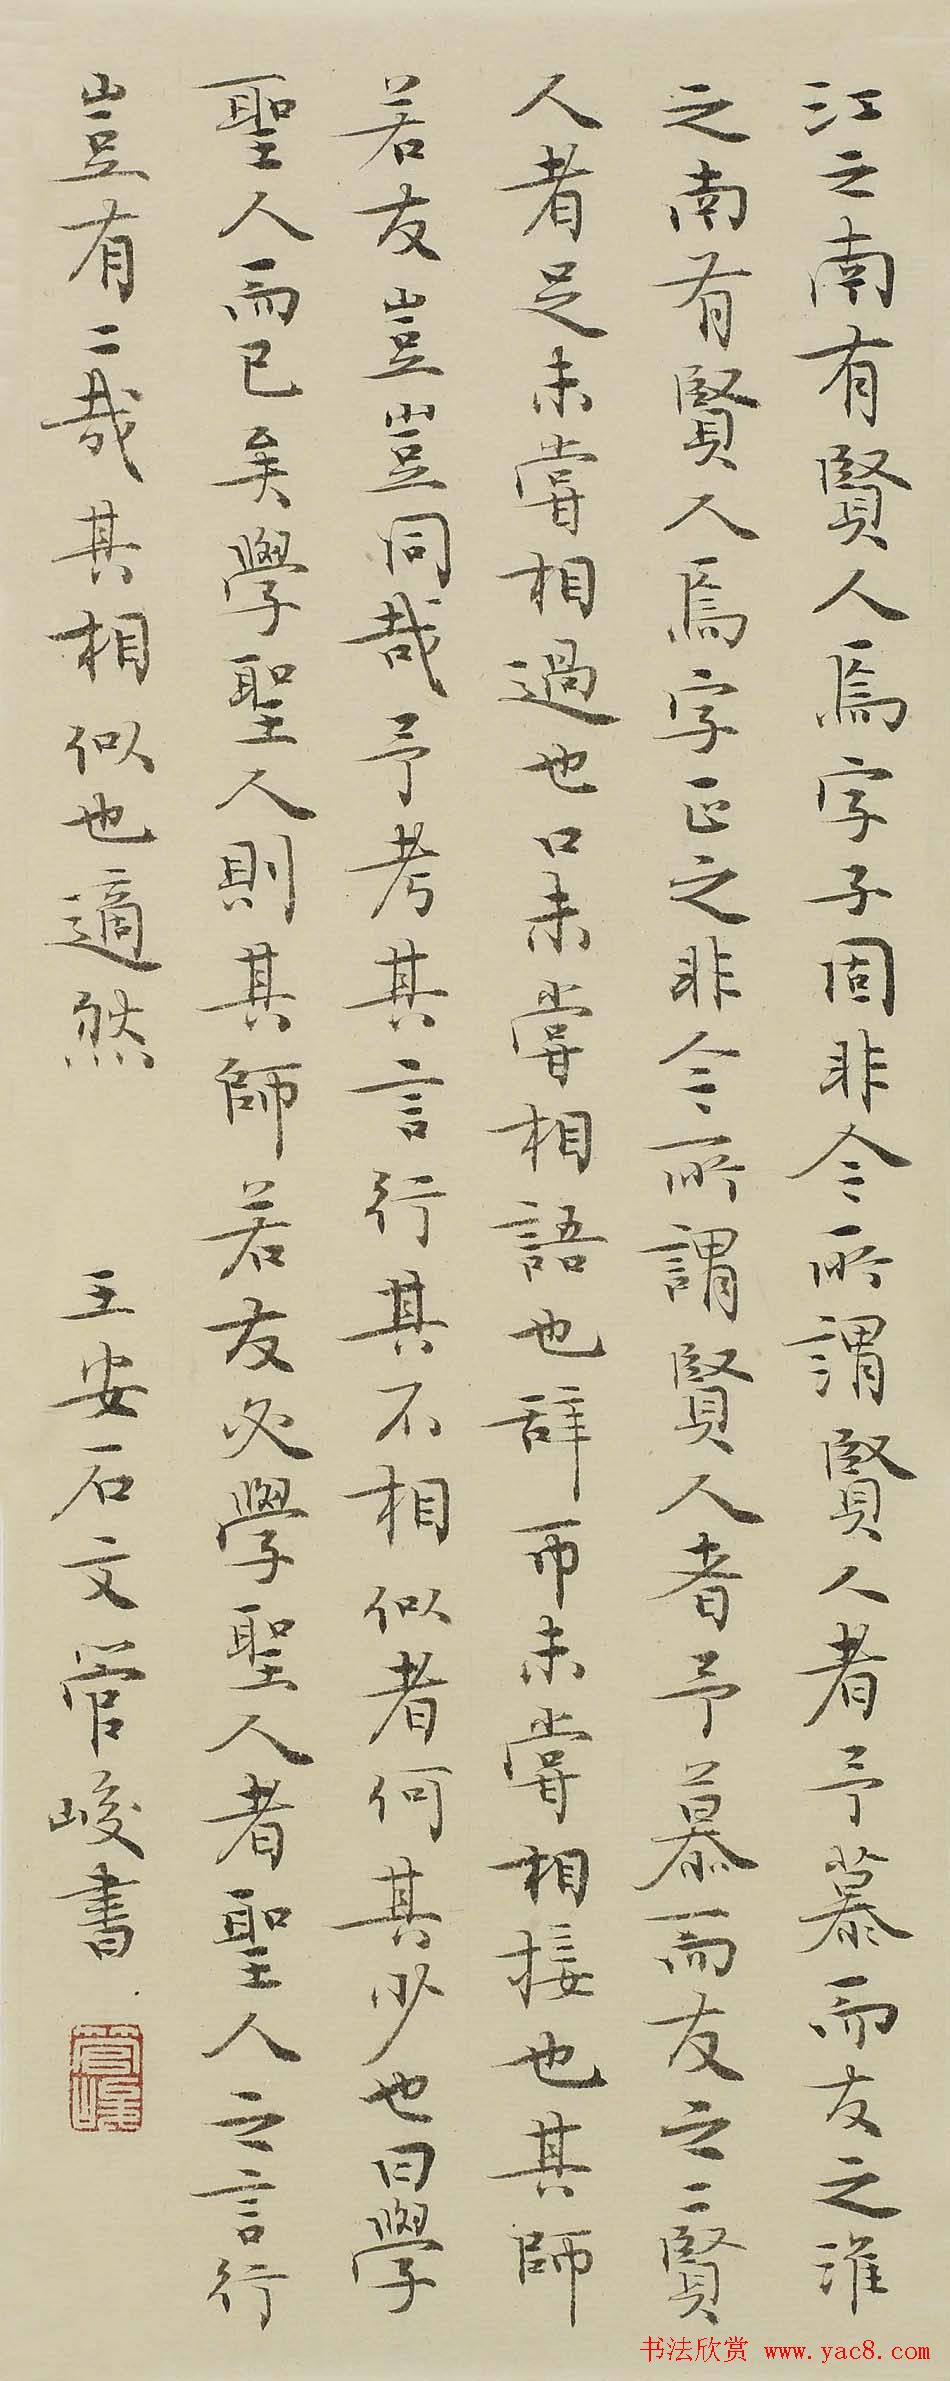 江之南有賢人焉字子固非今所謂賢人者予慕而友之淮
之南有賢人焉字正之非今所謂賢人者予慕而友之二賢
人者足未嘗相過也口未嘗相語也辞币未嘗相接也其師
若友豈豈同哉予考其言行其不相似者何其少也曰學
聖人而已矣學聖人則其師若友必學聖人者聖人之言行
豈有二哉其相似也適然 王安石文管峻書
管峻
书法欣赏 www.yac8.com